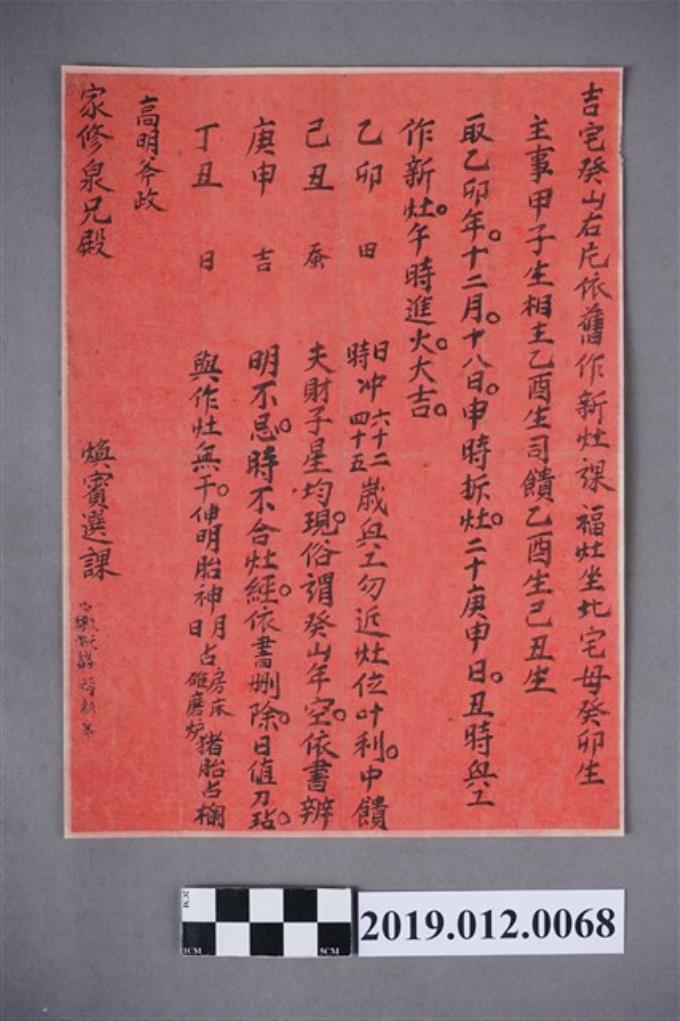 吉宅癸山右片依舊作新灶課福灶坐北宅母癸卯生
主事甲子生相主乙酉生司饋乙酉生己丑生
取乙卯年。十二月。十八日。申時拆灶。二十庚申日。丑時興工
作新灶。午時進火。大吉。
乙卯 田 日時冲六十二四十五歲興工勿近灶位叶利。中饋
己丑 蚕 夫財子星均現。俗謂癸山年空。依書辨
庚申 吉 明不忌。時不合灶經。依書刪除。日值刀砧。
丁丑 日 與作灶無干。伸明胎神月日占房床碓磨炉猪胎占欄
高明斧政
家修泉兄殿 煥賓選課
2019.012.0068
2CM
1CM
5CM